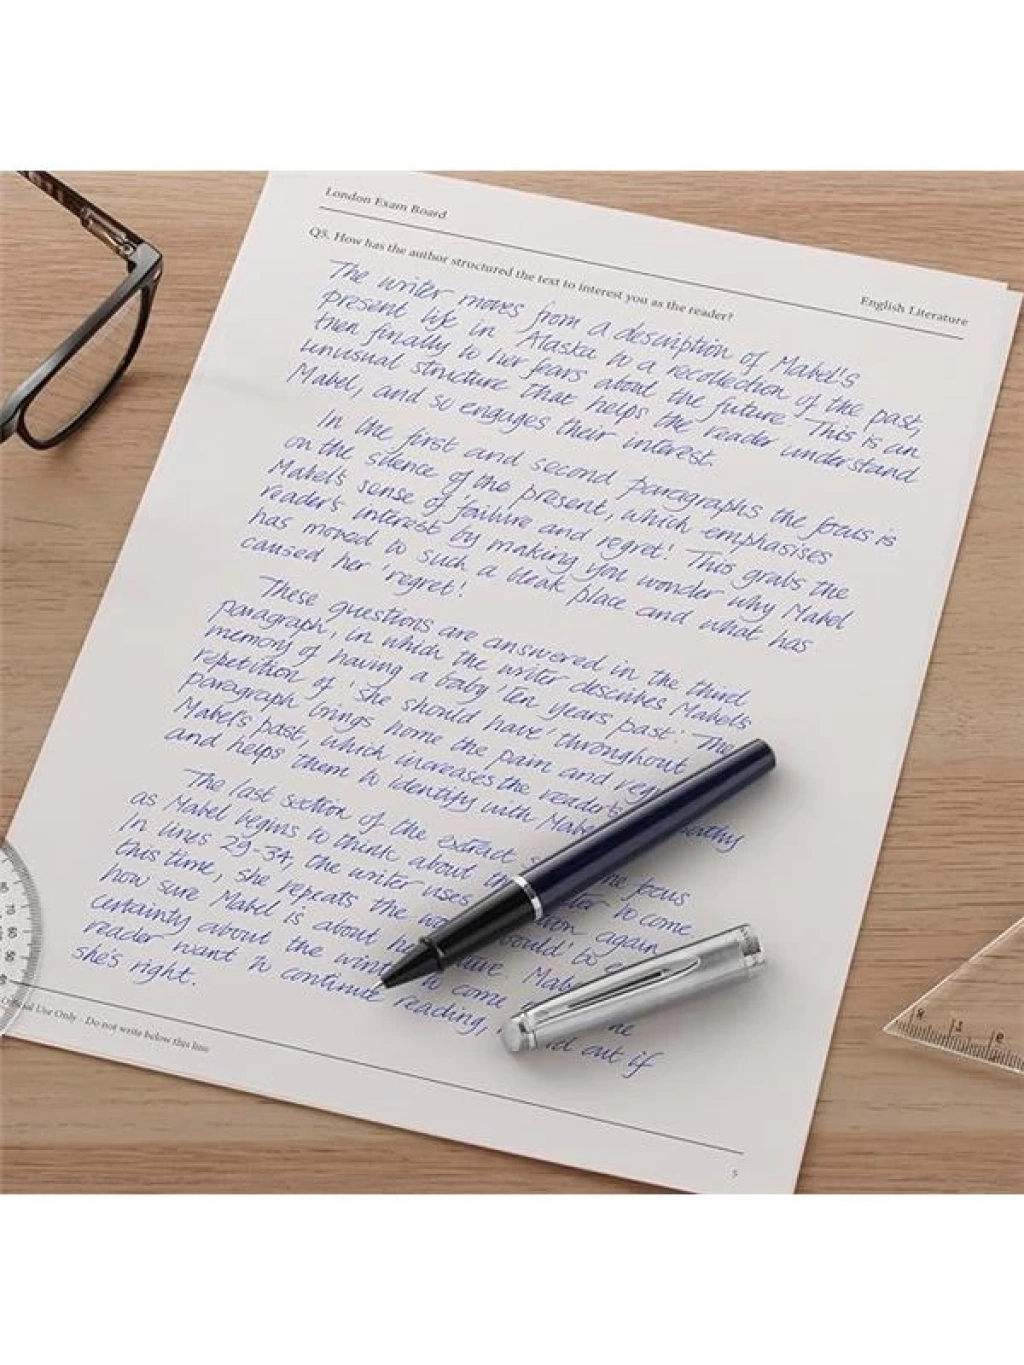 London Exam Board
English Literature
Q5. How has the author structured the text to interest you as the reader?
The writer moves from a description of Mabel's
present life in Alaska to a recollection of the past,
then finally to her fears about the future. This is an
unusual structure that helps the reader understand
Mabel, and so engages their interest.
In the first and second paragraphs the focus is
on the silence of the present, which emphasises
Mabel's sense of 'failure and regret! This grabs the
reader's interest by making you wonder why Mabel
has moved to such a bleak place and what has
caused her 'regret!
These questions are answered in the third
paragraph, in which the writer describes Mabel's
memory of having a baby 'ten years past'. The
repetition of 'she should have' throughout
paragraph brings home the pain and
Mabel's past, which increases the reader's
and helps them to identify with
The last section of the extract
focus
as Mabel begins to think about
to come.
In lines 29-34, the writer uses
again
this time, she repeats the
would' to
how sure Mabel is about
certainty about the
to come
reader want to continue reading,
out if
she's right.
Use Only - Do not write below this line
5